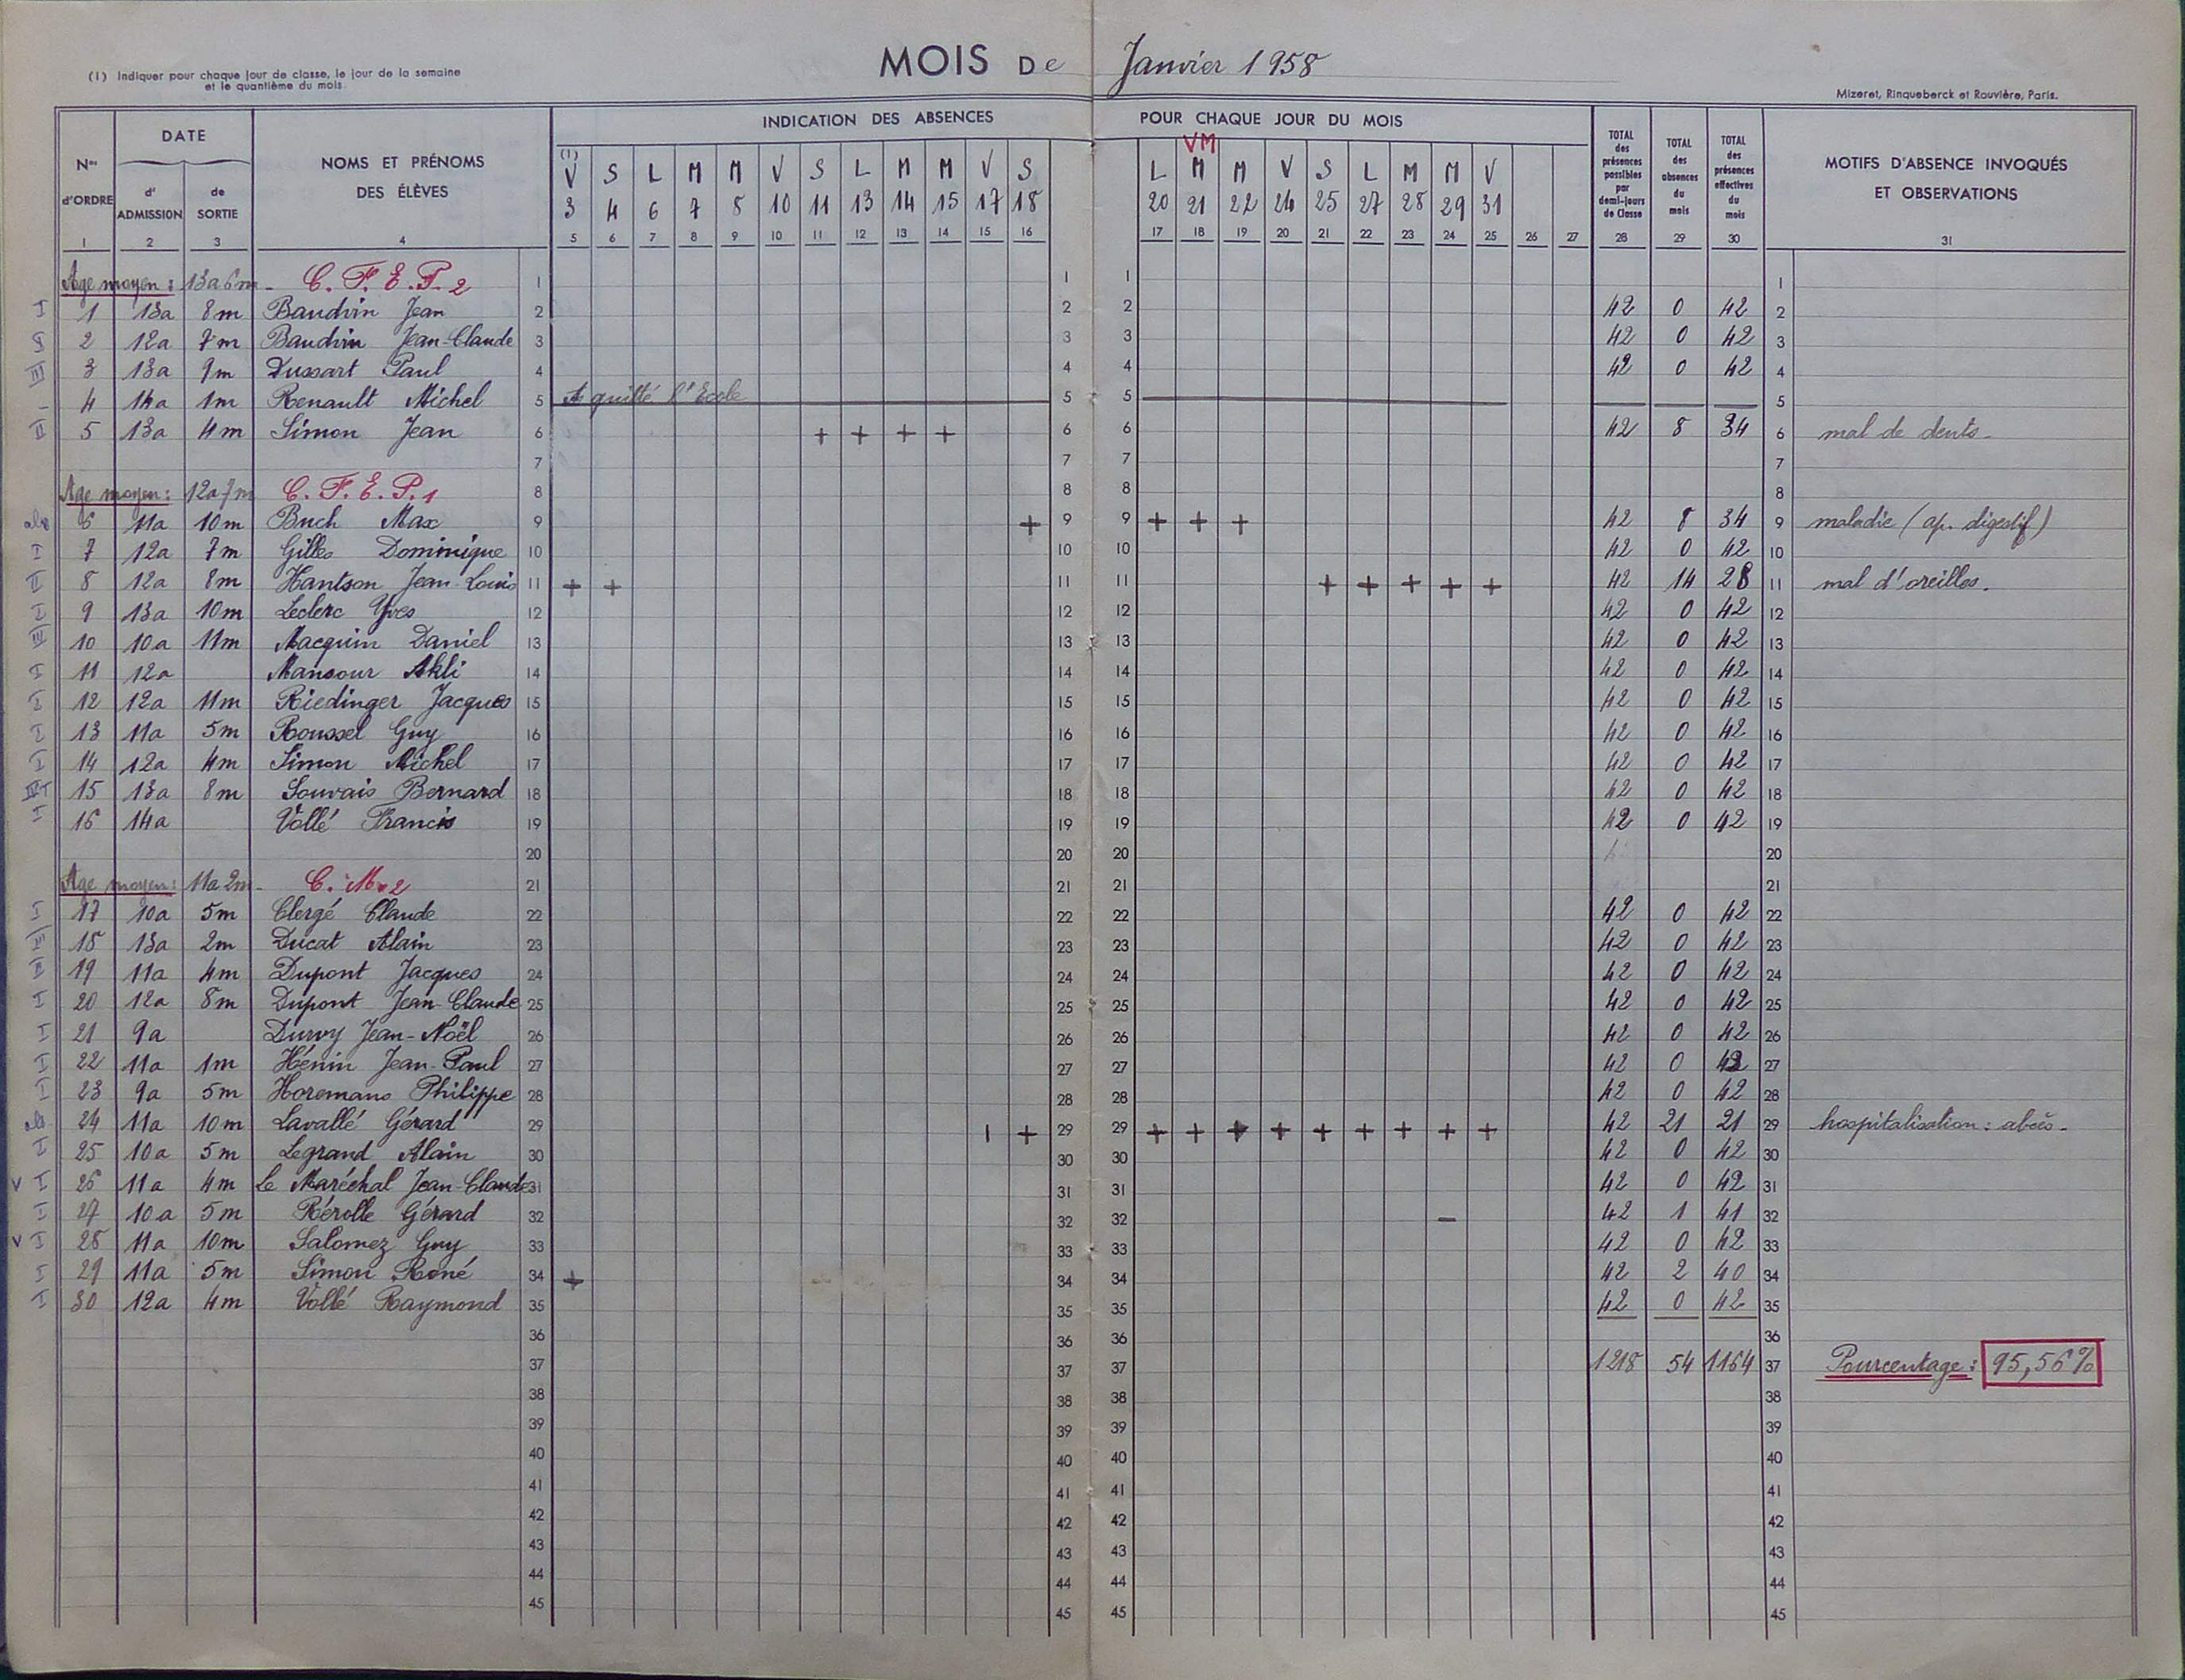 MOIS De Janvier 1958
(1) Indiquer pour chaque jour de classe, le jour de la semaine
et le quantième du mois.
Mizeret, Rinqueberck et Rouvière, Paris.
INDICATION DES ABSENCES POUR CHAQUE JOUR DU MOIS
Nos d'ORDRE DATE d'ADMISSION de SORTIE NOMS ET PRÉNOMS DES ÉLÈVES
TOTAL des présences possibles par demi-jours de Classe TOTAL des absences du mois TOTAL des présences effectives du mois MOTIFS D'ABSENCE INVOQUÉS ET OBSERVATIONS
VM
(1) V S L M M V S L M M V S L M M V S L M M V
3 4 6 7 8 10 11 13 14 15 17 18 20 21 22 24 25 27 28 29 31
1 2 3 4 5 6 7 8 9 10 11 12 13 14 15 16 17 18 19 20 21 22 23 24 25 26 27 28 29 30 31
Age moyen : 13a 6m - C.F.E.P.2 1 1 1 1
I 1 13a 8m Baudvin Jean 2 2 2 42 0 42 2
2 12a 7m Baudvin Jean-Claude 3 3 3 42 0 42 3
III 3 13a 9m Dussart Paul 4 4 4 42 0 42 4
- 4 14a 1m Renault Michel 5 A quitté l'Ecole 5 5 5
II 5 13a 4m Simon Jean 6 + + + + 6 6 42 8 34 6 mal de dents -
7 7 7 7
Age moyen : 12a 7m C.F.E.P.1 8 8 8 8
abs 6 11a 10m Buch Max 9 + 9 9 + + + 42 8 34 9 maladie (ap. digestif)
I 7 12a 7m Gilles Dominique 10 10 10 42 0 42 10
II 8 12a 8m Hantson Jean-Louis 11 + + 11 11 + + + + + 42 14 28 11 mal d'oreilles.
I 9 13a 10m Leclerc Yves 12 12 12 42 0 42 12
III 10 10a 11m Macquin Daniel 13 13 13 42 0 42 13
I 11 12a Mansour Akli 14 14 14 42 0 42 14
I 12 12a 11m Riedinger Jacques 15 15 15 42 0 42 15
I 13 11a 5m Roussel Guy 16 16 16 42 0 42 16
I 14 12a 4m Simon Michel 17 17 17 42 0 42 17
15 13a 8m Souvais Bernard 18 18 18 42 0 42 18
I 16 14a Vollé Francis 19 19 19 42 0 42 19
20 20 20 20
Age moyen : 11a 2m - C.M.2 21 21 21 21
I 17 10a 5m Clergé Claude 22 22 22 42 0 42 22
III 18 13a 2m Ducat Alain 23 23 23 42 0 42 23
II 19 11a 4m Dupont Jacques 24 24 24 42 0 42 24
I 20 12a 8m Dupont Jean-Claude 25 25 25 42 0 42 25
I 21 9a Durvy Jean-Noël 26 26 26 42 0 42 26
I 22 11a 1m Hénin Jean-Paul 27 27 27 42 0 42 27
I 23 9a 5m Horemans Philippe 28 28 28 42 0 42 28
abs 24 11a 10m Lavallé Gérard 29 | + 29 29 + + + + + + + + + 42 21 21 29 hospitalisation : abcès -
I 25 10a 5m Legrand Alain 30 30 30 42 0 42 30
V I 26 11a 4m Le Maréchal Jean-Claude 31 31 31 42 0 42 31
I 27 10a 5m Rérolle Gérard 32 32 32 - 42 1 41 32
V I 28 11a 10m Salomez Guy 33 33 33 42 0 42 33
I 29 11a 5m Simon René 34 + 34 34 42 2 40 34
I 30 12a 4m Vollé Raymond 35 35 35 42 0 42 35
36 36 36 36
37 37 37 1218 54 1164 37 Pourcentage : 95,56%
38 38 38 38
39 39 39 39
40 40 40 40
41 41 41 41
42 42 42 42
43 43 43 43
44 44 44 44
45 45 45 45